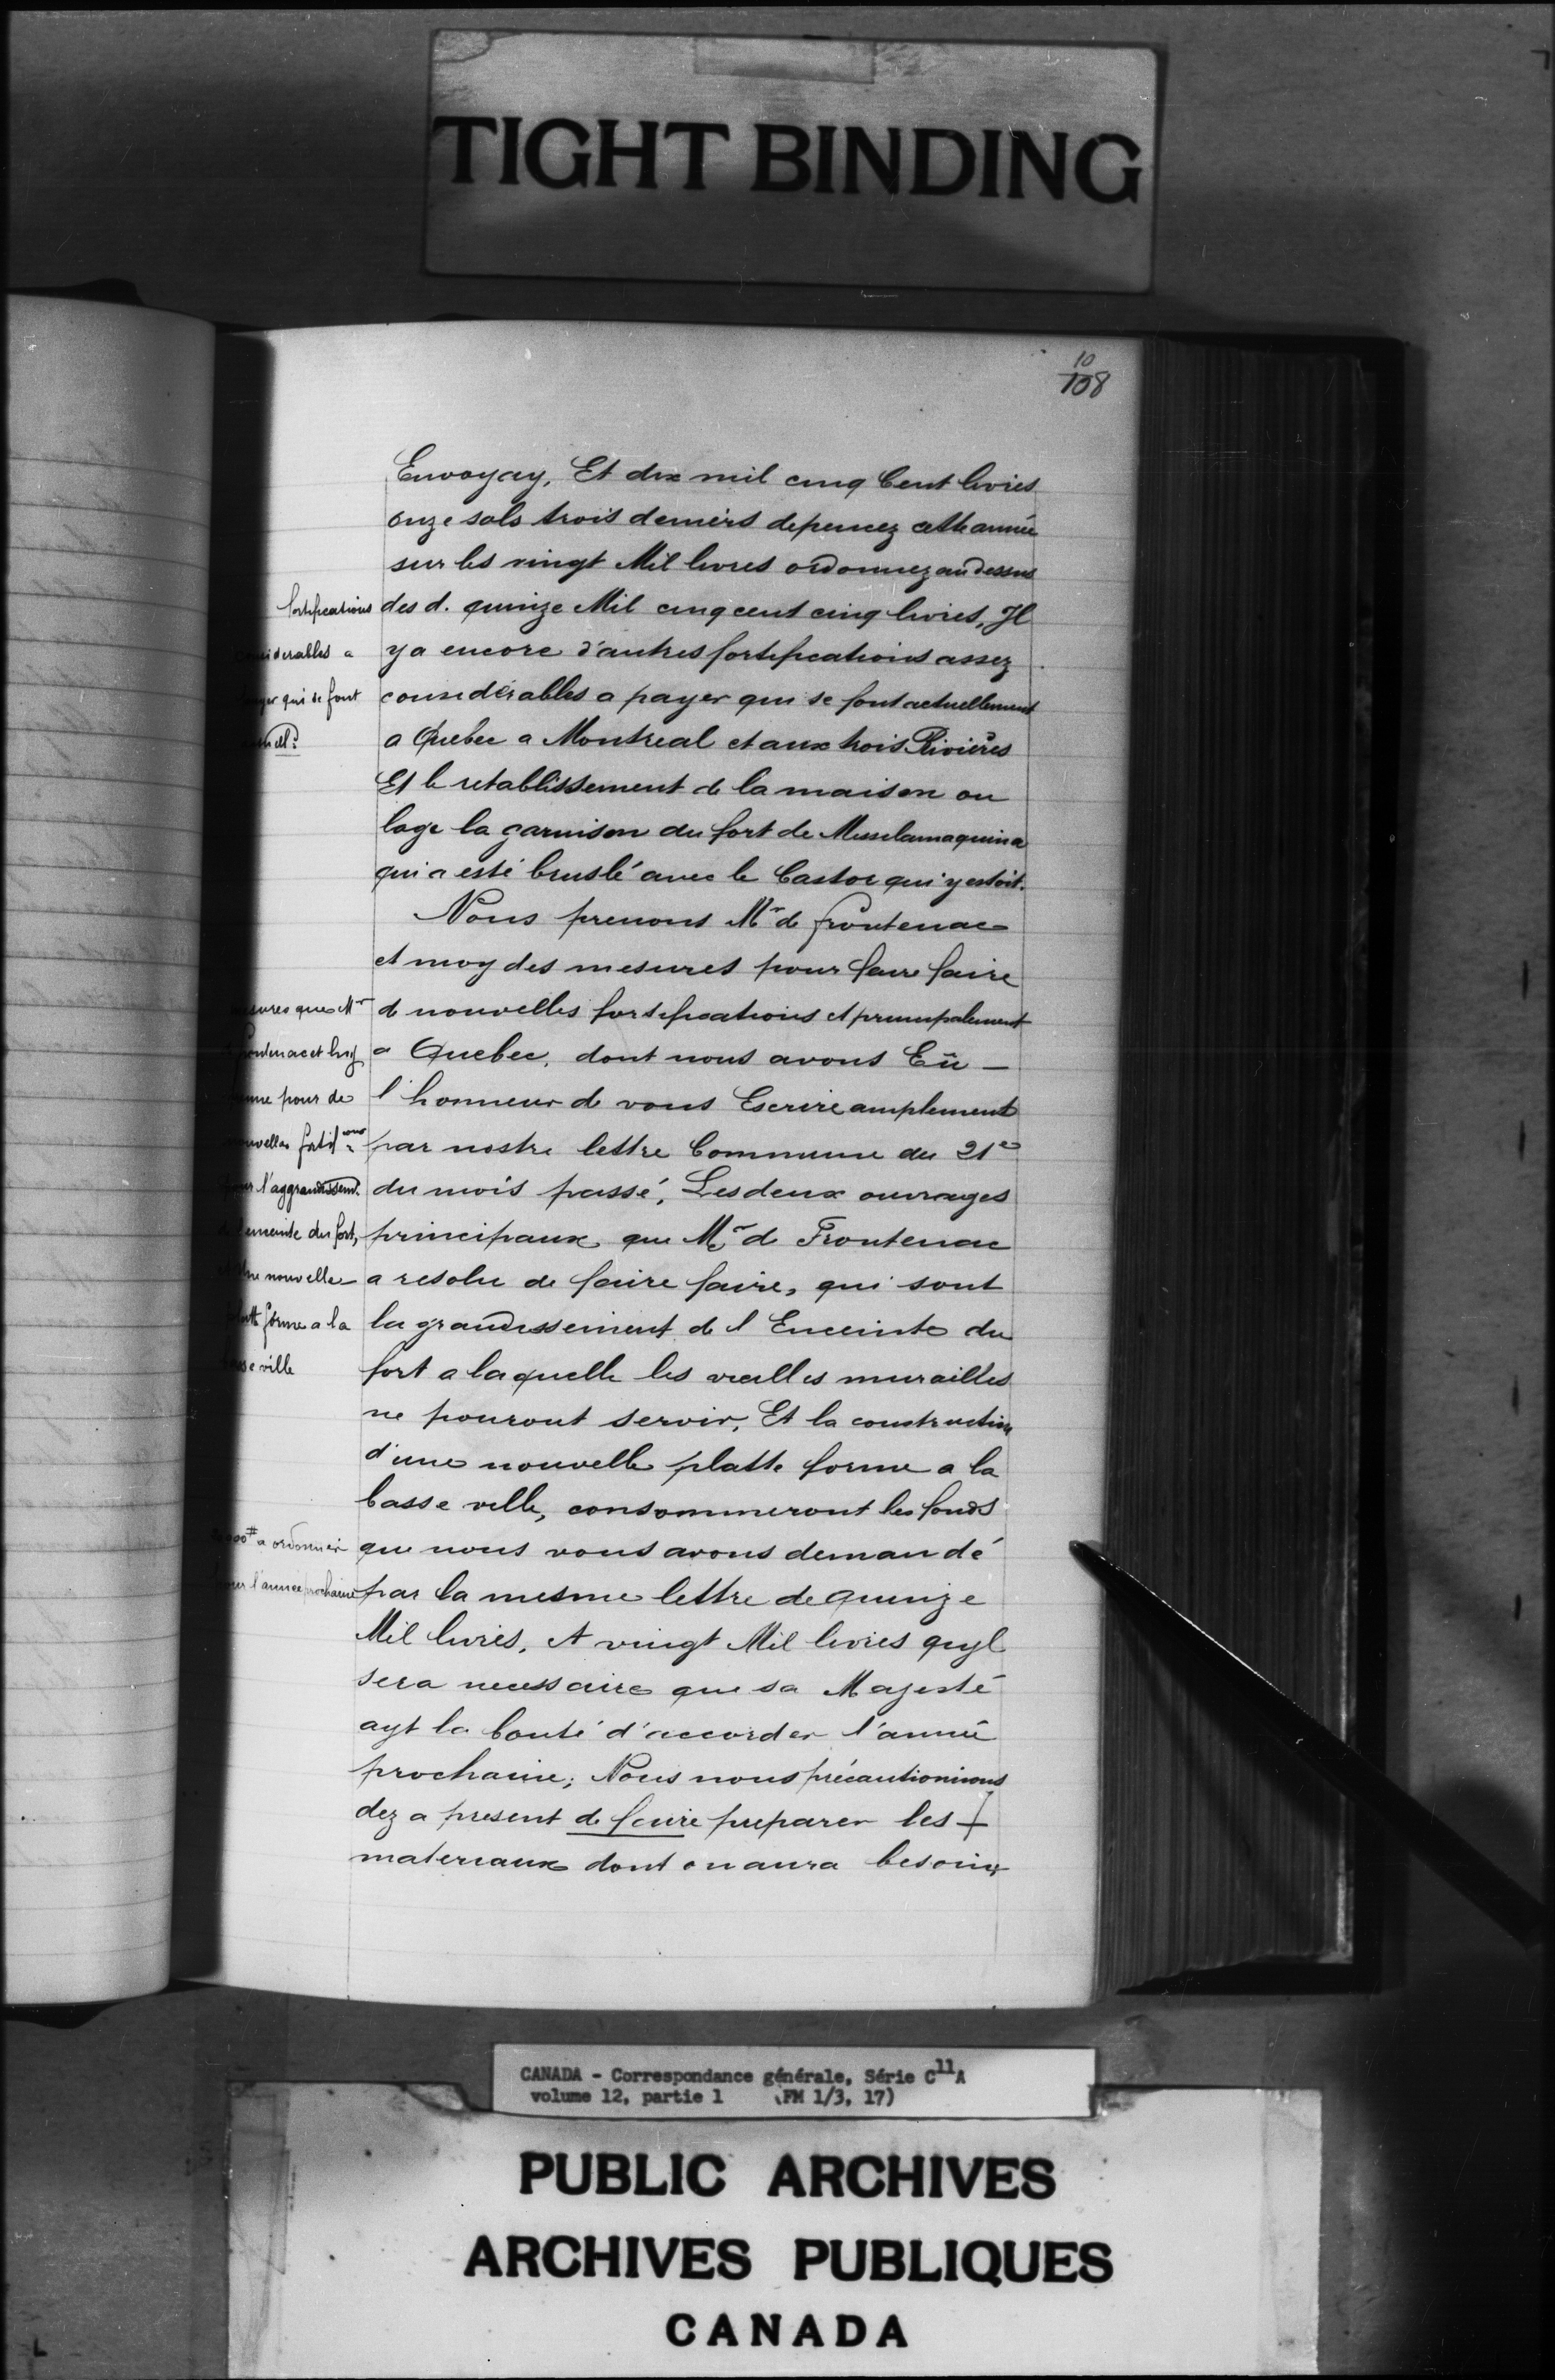 TIGHT BINDING
10
108
Envoyay, Et dix mil cinq Cent livres
onze sols trois deniers depencez cette année
sur les vingt Mil livres ordonnez au dessus
des d. quinze Mil cinq cent cinq livres, Il
y a encore d'autres fortifications assez
considérables a payer qui se font actuellement
a Quebec a Montreal et aux trois Rivières
Et le retablissement de la maison ou
loge la garnison du fort de Missilamaquina
qui a esté bruslé avec le Castor qui y estoit.
Nous prenons Mr de frontenac
et moy des mesures pour faire faire
de nouvelles fortifications et principalement
a Quebec, dont nous avons Eü
l'honneur de vous Escrire amplement
par nostre lettre Commune du 21e
du mois passé, Les deux ouvrages
principaux que Mr de Frontenac
a resolu de faire faire, qui sont
la grandissement de l Enceinte du
fort a laquelle les vieilles murailles
ne pouront servir, Et la construction
d'une nouvelle platte forme a la
basse ville, consommeront les fonds
que nous vous avons demandé
par la mesme lettre de quinze
Mil livres, A vingt Mil livres qu'yl
sera necessaire que sa Majesté
ayt la bonté d'accorder l'année
prochaine; Nous nous précautionirons
dez a present de faire preparer les
materiaux dont on aura besoin
fortifications
a
qui se font
que Mr
et luy
pour de
l'aggrandissemt.
enceinte du fort,
nouvelle
forme a la
ville
a ordonner
l'année prochaine
CANADA - Correspondance générale, Série C11A
volume 12, partie 1 (FM 1/3, 17)
PUBLIC ARCHIVES
ARCHIVES PUBLIQUES
CANADA